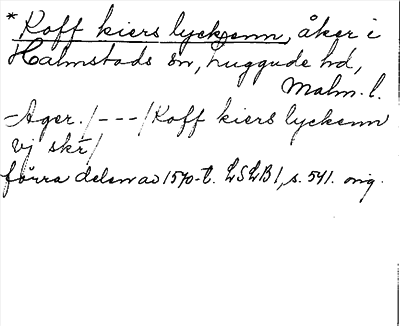 * Koff kiers lyckenn, åker i
Halmstads sn, Luggude hd,
Malm. l.
- Ager. /---/ Koff kiers lyckenn
vj skr /
förra delen av 1570-t. LSLB 1, s. 541. orig.